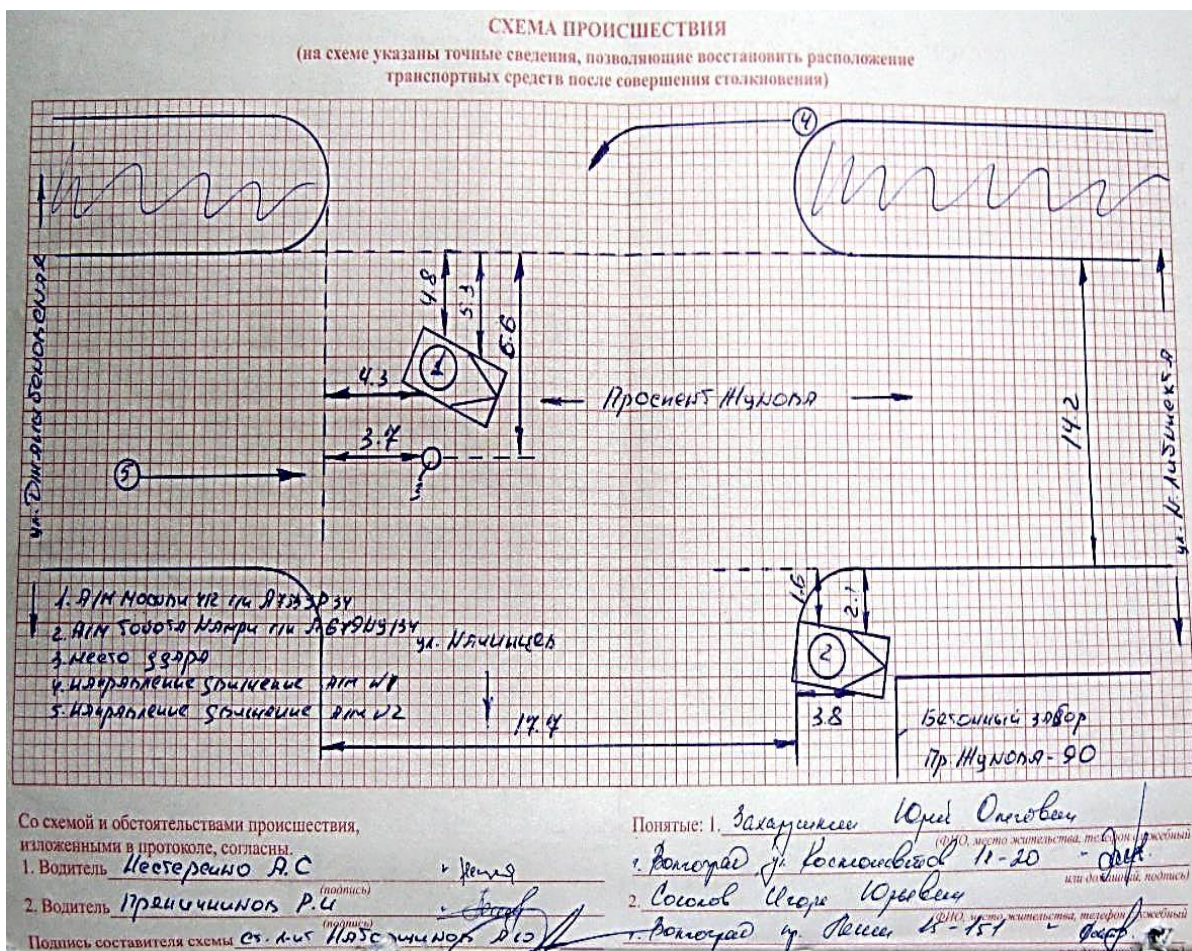 СХЕМА ПРОИСШЕСТВИЯ
(на схеме указаны точные сведения, позволяющие восстановить расположение
транспортных средств после совершения столкновения)
4
4.8
5.3
6.6
1
4.3
Проспект Жукова
3.7
5
14.2
1.6
2.1
1. А/М Москвич 412 г/н
2. А/М Тойота Камри г/н
3. место удара
4. направление движения А/М №1
5. направление движения А/М №2
ул. Качинцев
2
3.8
17.7
Бетонный забор
Пр. Жукова-90
Со схемой и обстоятельствами происшествия,
изложенными в протоколе, согласны.
1. Водитель Нестеренко А.С
(подпись)
2. Водитель Пряничников Р.И
(подпись)
Подпись составителя схемы ст. л-нт
Понятые: 1. Юрий Олегович
(ФИО, место жительства, телефон служебный
г. Волгоград ул. Космонавтов 11-20
или домашний, подпись)
2. Соколов Игорь Юрьевич
(ФИО, место жительства, телефон служебный
г. Волгоград ул. 15-151